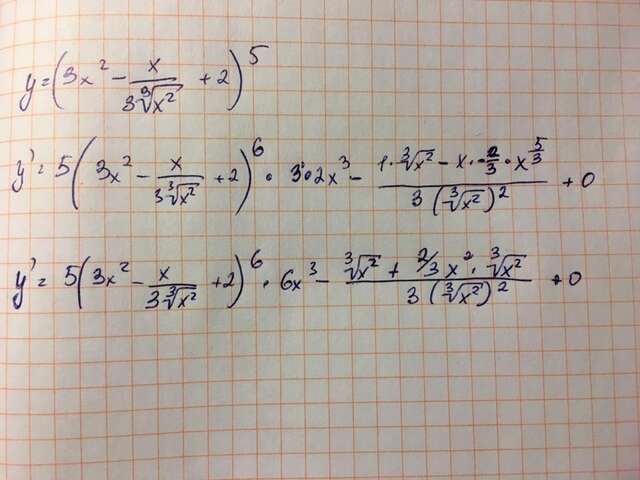 y = (3x² − x/(3∛x²) + 2)⁵
y' = 5(3x² − x/(3∛x²) + 2)⁶ · 3·2x³ − (1·∛x² − x·−2/3·x^(5/3))/(3(∛x²)²) + 0
y' = 5(3x² − x/(3∛x²) + 2)⁶ · 6x³ − (∛x² + 2/3 x²·∛x²)/(3(∛x²)²) + 0